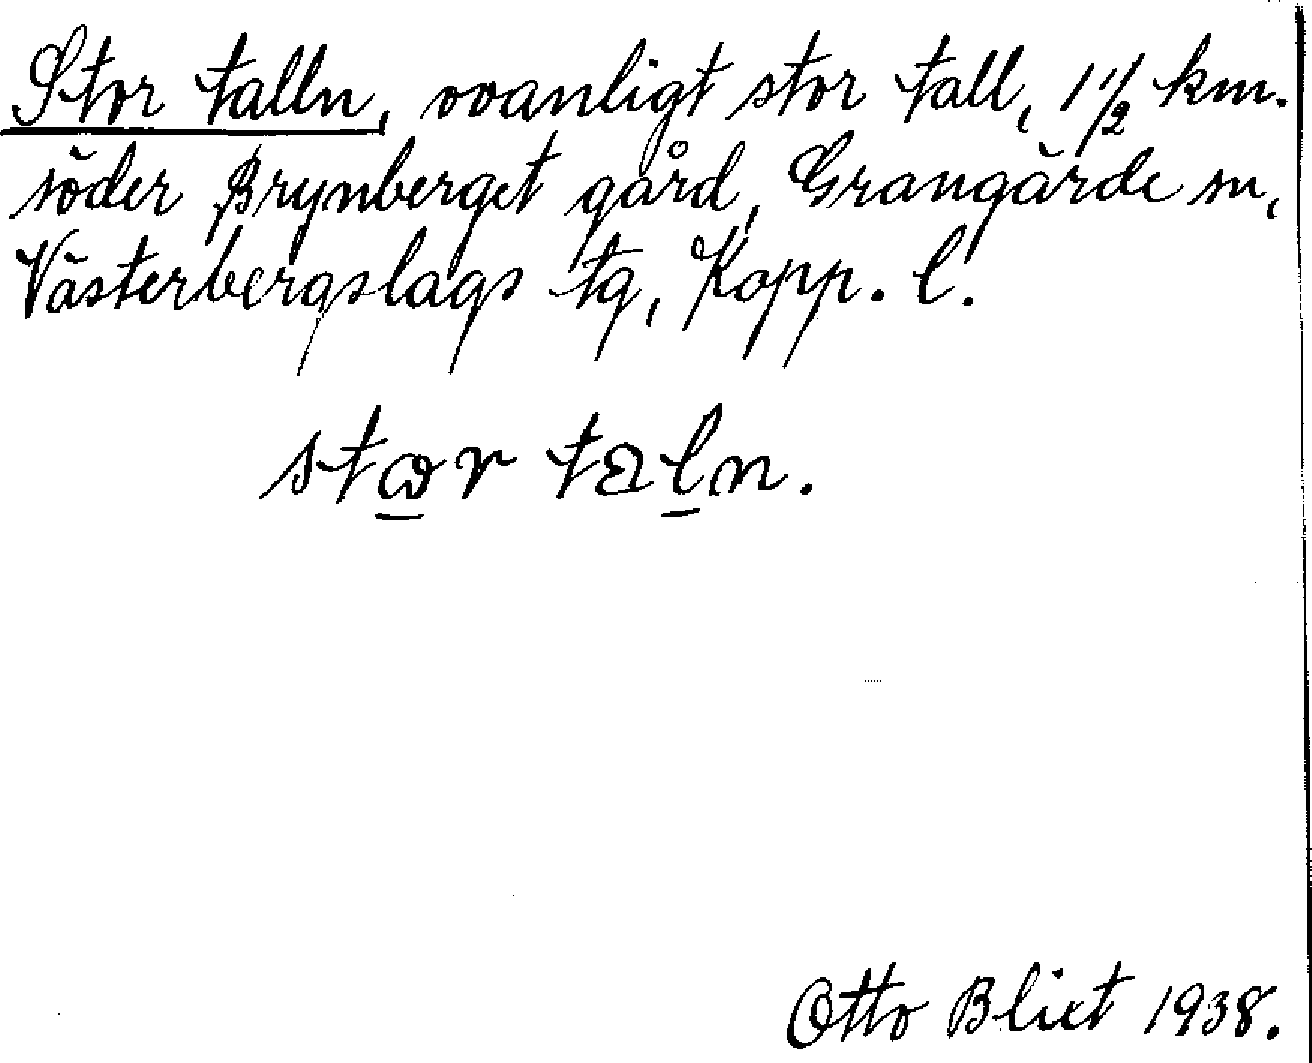 Stor talln, ovanligt stor tall, 1 1/2 km.
söder Brynberget gård, Grangärde sn,
Västerbergslags tg, Kopp. l.
Otto Blixt 1938.